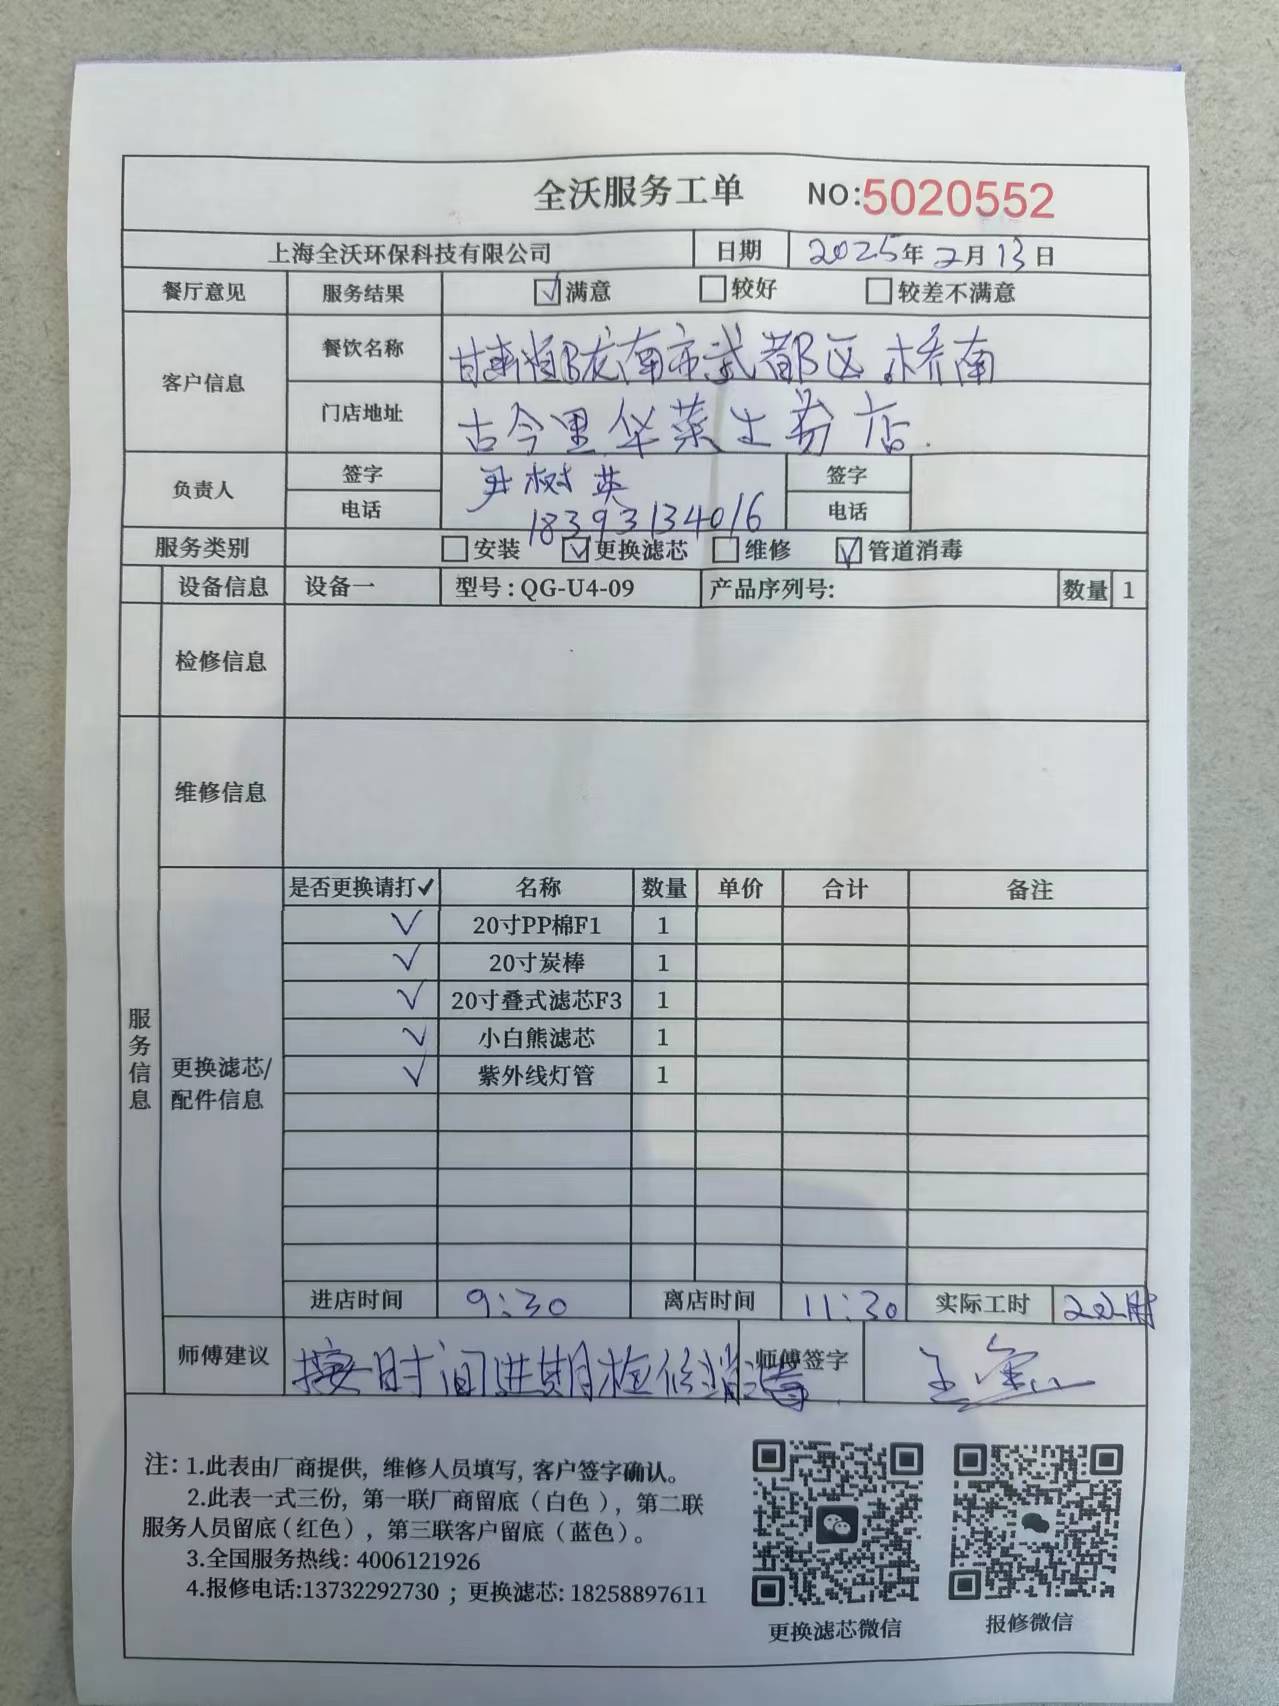 全沃服务工单 NO:5020552
上海全沃环保科技有限公司 日期 2025年2月13日
餐厅意见 服务结果 ☑满意 □较好 □较差不满意
客户信息 餐饮名称 甘肃省陇南市武都区桥南
门店地址 古今里华莱士前店.
负责人 签字 尹树英 签字
电话 18393134016 电话
服务类别 □安装 ☑更换滤芯 □维修 ☑管道消毒
设备信息 设备一 型号:QG-U4-09 产品序列号: 数量 1
检修信息
维修信息
服务信息
更换滤芯/
配件信息
是否更换请打✓ 名称 数量 单价 合计 备注
✓ 20寸PP棉F1 1
✓ 20寸炭棒 1
✓ 20寸叠式滤芯F3 1
✓ 小白熊滤芯 1
✓ 紫外线灯管 1
进店时间 9:30 离店时间 11:30 实际工时 2小时
师傅建议 按时间进期检修消毒. 师傅签字 王
注: 1.此表由厂商提供, 维修人员填写, 客户签字确认。
2.此表一式三份, 第一联厂商留底（白色）, 第二联
服务人员留底（红色）, 第三联客户留底（蓝色）。
3.全国服务热线: 4006121926
4.报修电话:13732292730 ; 更换滤芯: 18258897611
更换滤芯微信 报修微信